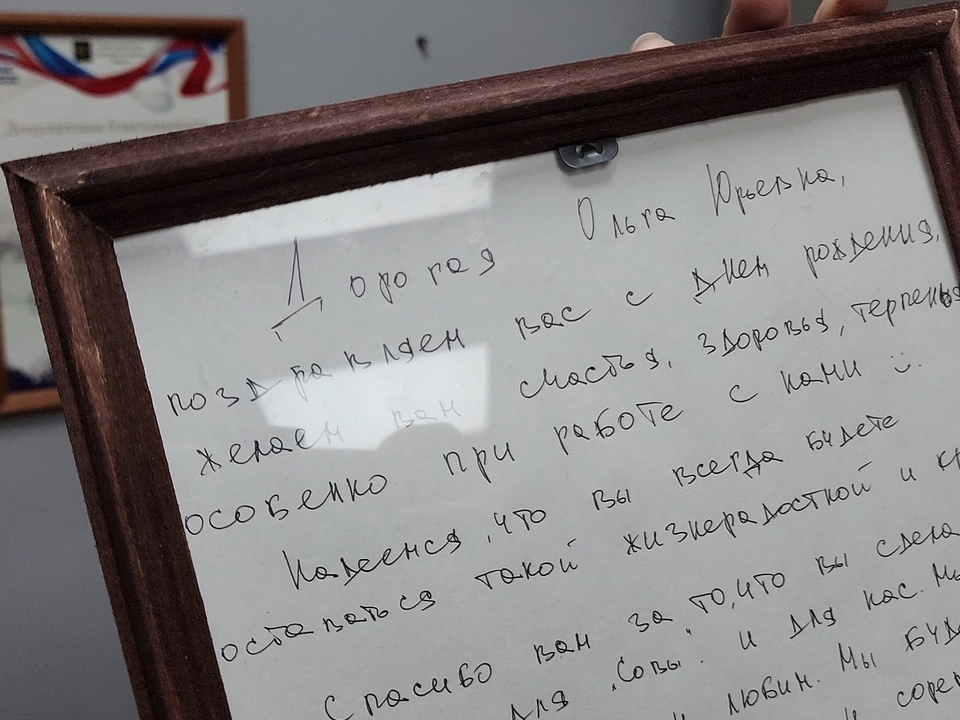 Дорогая Ольга Юрьевна,
поздравляем вас с днем рождения,
желаем вам счастья, здоровья, терпенья
особенно при работе с нами :).
Надеемся, что вы всегда будете
оставаться такой жизнерадостной и
Спасибо вам за то, что вы сдела
для "Совы" и для нас. Мы
любим. Мы буд
и сорев